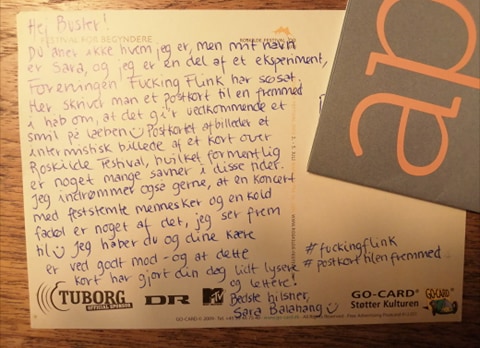 Hej Buster!
Du aner ikke hvem jeg er, men mit navn
er Sara, og jeg er en del af et eksperiment,
Foreningen Fucking Flink har søsat.
Her skriver man et postkort til en fremmed
i håb om, at det gi'r vedkommende et
smil på læben☺ Postkortet afbilleder et
intermistisk billede af et kort over
Roskilde Festival, hvilket formentlig
er noget mange savner i disse tider.
Jeg indrømmer også gerne, at en koncert
med feststemte mennesker og en kold
fadøl er noget af det, jeg ser frem
til☺ Jeg håber du og dine kære
er ved godt mod - og at dette
kort har gjort din dag lidt lysere
og lettere!
Bedste hilsner,
Sara Balahang☺
#fuckingflink
#postkorttilenfremmed
ap
TUBORG
OFFICIAL SPONSOR
DR
MTV
GO-CARD®
Støtter Kulturen
GO-CARD